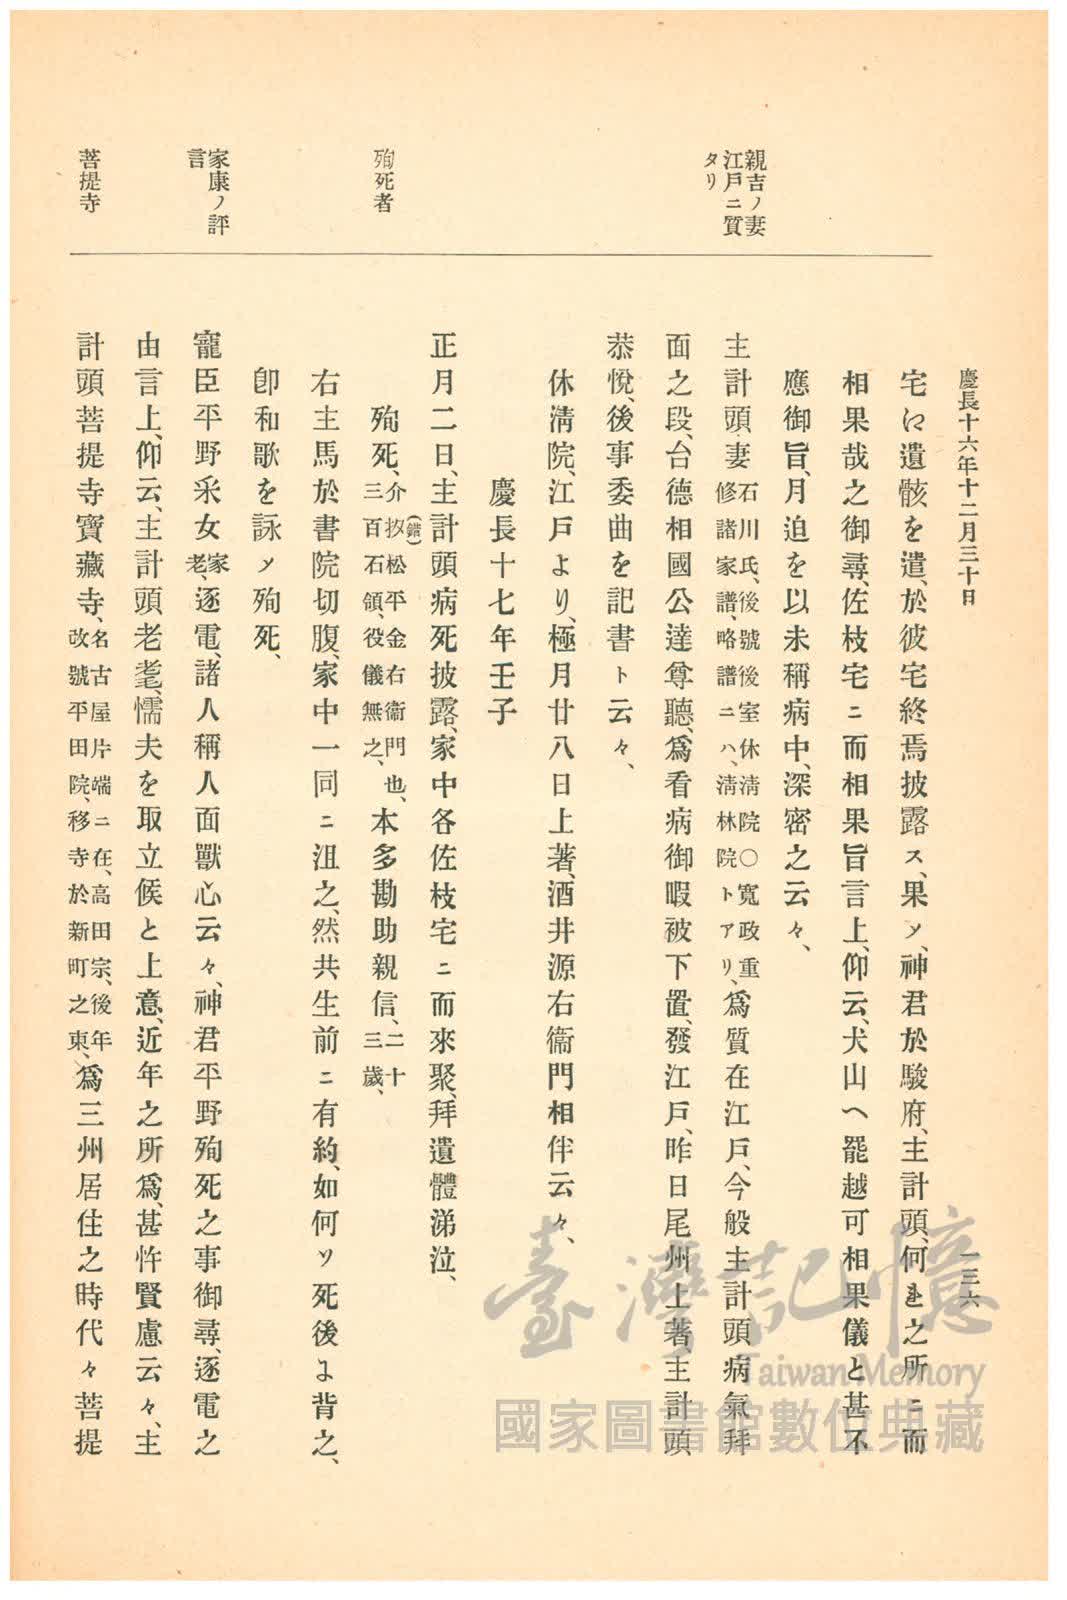 慶長十六年十二月三十日
一三六
宅に遺骸を遣、於彼宅終焉披露ス、果ソ、神君於駿府、主計頭、何れ之所ニ而
相果哉之御尋、佐枝宅ニ而相果旨言上、仰云、犬山へ罷越可相果儀と甚不
應御旨、月迫を以未稱病中、深密之云々、
親吉ノ妻
江戸ニ質
タリ
主計頭妻石川氏、後號後室休淸院〇寬政重
修諸家譜、略譜ニハ、淸林院トアリ、爲質在江戸、今般主計頭病氣拜
面之段、台德相國公達尊聽、爲看病御暇被下置、發江戸、昨日尾州上著主計頭
恭悅、後事委曲を記書ト云々、
休淸院、江戸より、極月廿八日上著、酒井源右衞門相伴云々、
慶長十七年壬子
正月二日、主計頭病死披露、家中各佐枝宅ニ而來聚、拜遺體涕泣、
殉死者
殉死、介㧞(錯)松平金右衞門也、
三百石領、役儀無之、本多勘助親信、二十
三歲、
右主馬於書院切腹、家中一同ニ沮之、然共生前ニ有約、如何ソ死後よ背之、
卽和歌を詠ノ殉死、
家康ノ評
言
寵臣平野采女家
老、逐電、諸人稱人面獸心云々、神君平野殉死之事御尋、逐電之
由言上、仰云、主計頭老耄、懦夫を取立候と上意、近年之所爲、甚忤賢慮云々、主
菩提寺
計頭菩提寺寶藏寺、名古屋片端ニ在、高田宗、後年
改號平田院、移寺於新町之東、爲三州居住之時代々菩提
臺灣記憶
Taiwan Memory
國家圖書館數位典藏